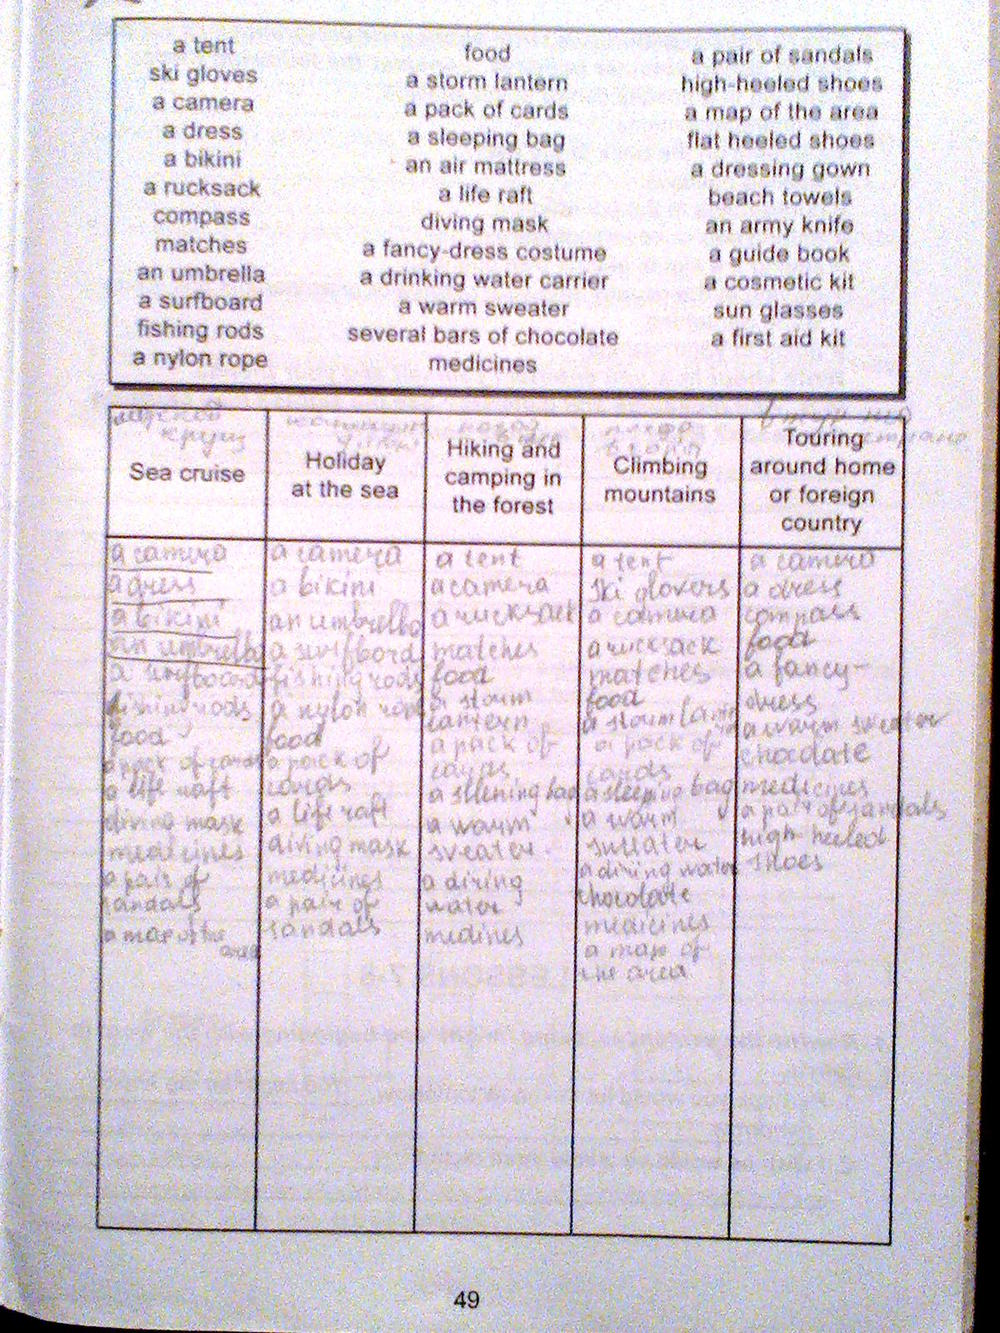 a tent
ski gloves
a camera
a dress
a bikini
a rucksack
compass
matches
an umbrella
a surfboard
fishing rods
a nylon rope
food
a storm lantern
a pack of cards
a sleeping bag
an air mattress
a life raft
diving mask
a fancy-dress costume
a drinking water carrier
a warm sweater
several bars of chocolate
medicines
a pair of sandals
high-heeled shoes
a map of the area
flat heeled shoes
a dressing gown
beach towels
an army knife
a guide book
a cosmetic kit
sun glasses
a first aid kit
морской
круиз
Sea cruise
a camera
a dress
a bikini
an umbrella
a surfboard
fishing rods
food
a pack of cards
a life raft
diving mask
medicines
a pair of
sandals
a map of the
area
Holiday
at the sea
a camera
a bikini
an umbrella
a surfbord
fishing rods
a nylon rope
food
a pack of
covers
a life raft
diving mask
medicines
a pair of
sandals
поход
Hiking and
camping in
the forest
a tent
a camera
a rucksack
matches
food
a storm
lantern
a pack of
cards
a sleening bag
a warm
sveater
a diring
water
medines
Climbing
mountains
a tent
ski glovers
a camera
a rucksack
matches
food
a storm
a pack of
cards
a sleeping bag
a warm
sweater
a diring water
chocolate
medicines
a map of
the area
Touring
around home
or foreign
country
a camera
a dress
compass
food
a fancy-
dress
a warm sweater
chocolate
medicines
a pair of sandals
high heeled
shoes
49